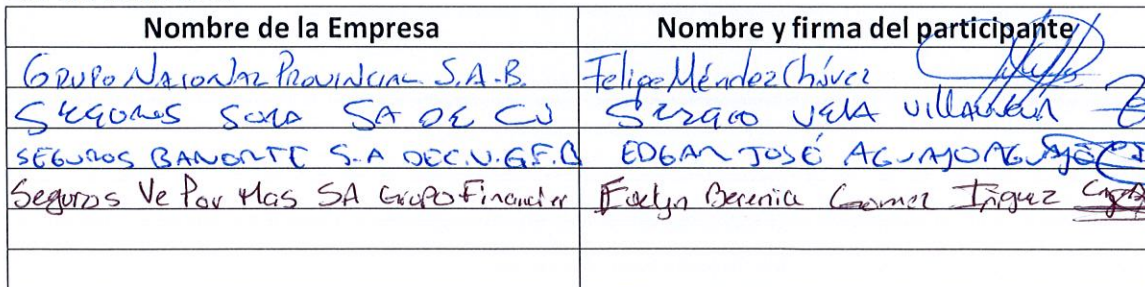 Nombre de la Empresa Nombre y firma del participante
GRUPO NACIONAL PROVINCIAL S.A.B. Felipe Méndez Chávez
SEGUROS SURA SA DE CV SERGIO VELA VILLARREAL
SEGUROS BANORTE S.A DE C.V. G.F.B EDGAR JOSÉ AGUAYO AGUAYO
Seguros Ve Por Mas SA Grupo Financier Evelyn Berenice Gomez Iñiguez